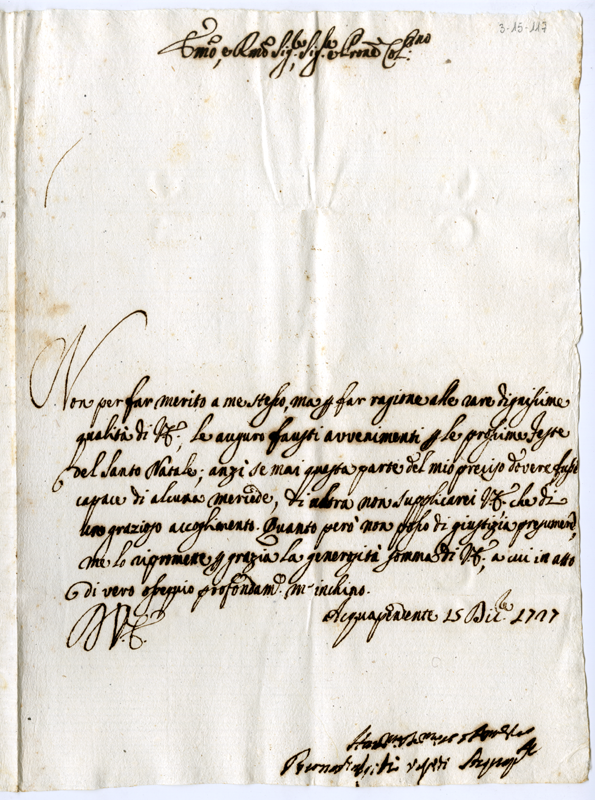 3-15-117
Emo, e Rmo Sig.re, Sig.re e Prone Col.mo
Non per far merito a me stesso, ma p far ragione alle rare dignissime
qualità di V.E., le auguro fausti avvenimenti p le prossime feste
del Santo Natale; anzi se mai questa parte del mio preciso dovere fusse
capace di alcuna mercede, di altra non supplicarei V.E. che di
un grazioso accoglimento. Quanto però non posso di giustizia presumere,
me lo riprometto p grazia la generosità somma di V.E., a cui in atto
di vero ossequio profondam.e m'inchino.
D V.E.
Acquapendente 15 Dic.re 1727